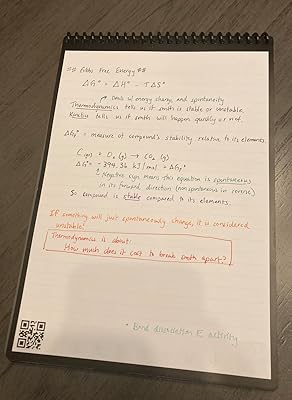 ## Gibbs Free Energy ##
ΔG° = ΔH° - TΔS°
Deals w/ energy change and spontaneity
Thermodynamics tells us if smth is stable or unstable.
Kinetics tells us if smth will happen quickly or not.
ΔGf° = measure of compound's stability relative to its elements
C(gr) + O2 (g) → CO2 (g)
ΔG° = -394.36 kJ/mol = ΔGf°
↑ Negative sign means this equation is spontaneous
in its forward direction (nonspontaneous in reverse)
So compound is stable compared to its elements.
If something will just spontaneously change, it is considered
unstable!
Thermodynamics is about:
How much does it cost to break smth apart?
* Bond dissociation E activity